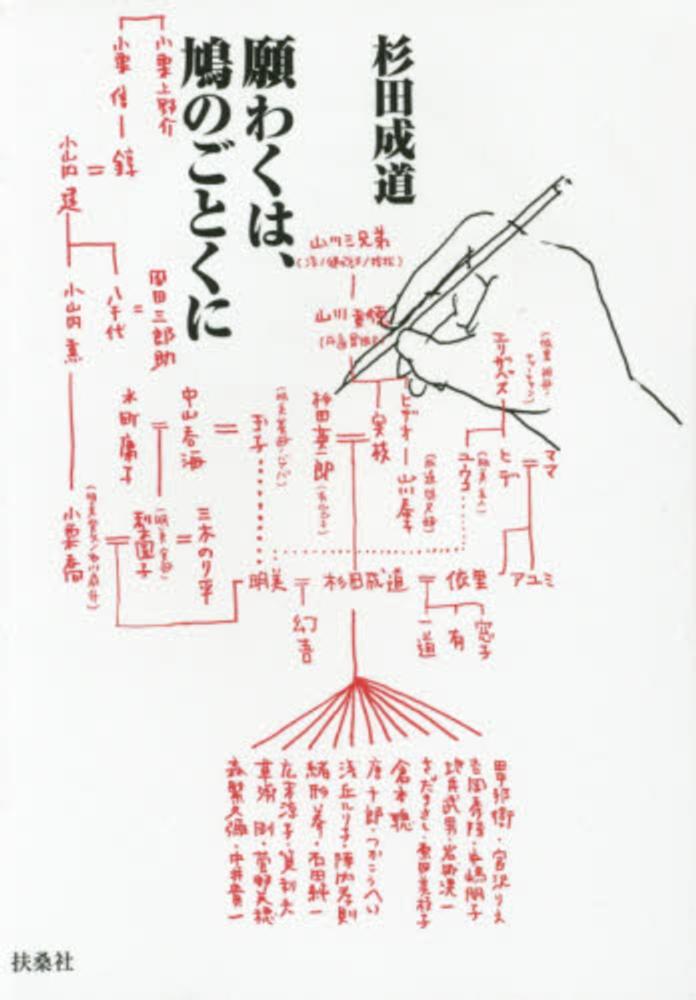 杉田成道
願わくは、
鳩のごとくに
小栗上野介
小栗信
錞
小山内建
小山内薫
八千代
岡田三郎助
水町庸子
中山呑海
玉子
杉田重二郎
実枝
ヒデオ
山川三兄弟
エリザベス
ユウコ
ヒデ
ママ
小栗喬
梨園子
三木のり平
明美
杉田成道
依里
アユミ
幻吾
一道
有
窓子
田中邦衛・宮沢りえ
吉岡秀隆・中嶋朋子
地井武男・岩城滉一
さだまさし・原田美枝子
倉本聰
唐十郎・つかこうへい
浅丘ルリ子・陣内孝則
緒形拳・石田純一
広末涼子・筧利夫
草彅剛・菅野美穂
森繁久彌・中井貴一
扶桑社